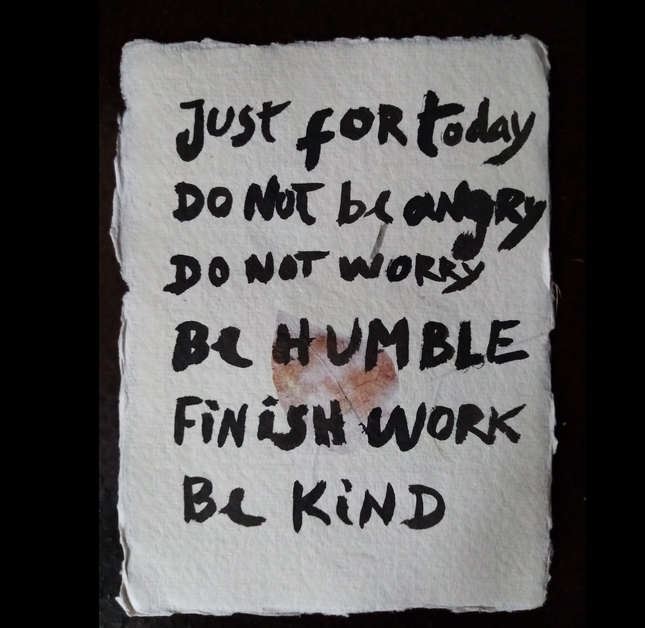 Just fOR today
DO NOT be aNgRy
DO NOT WORRy
Be HUMBLE
FiNiSH WORK
Be KiND